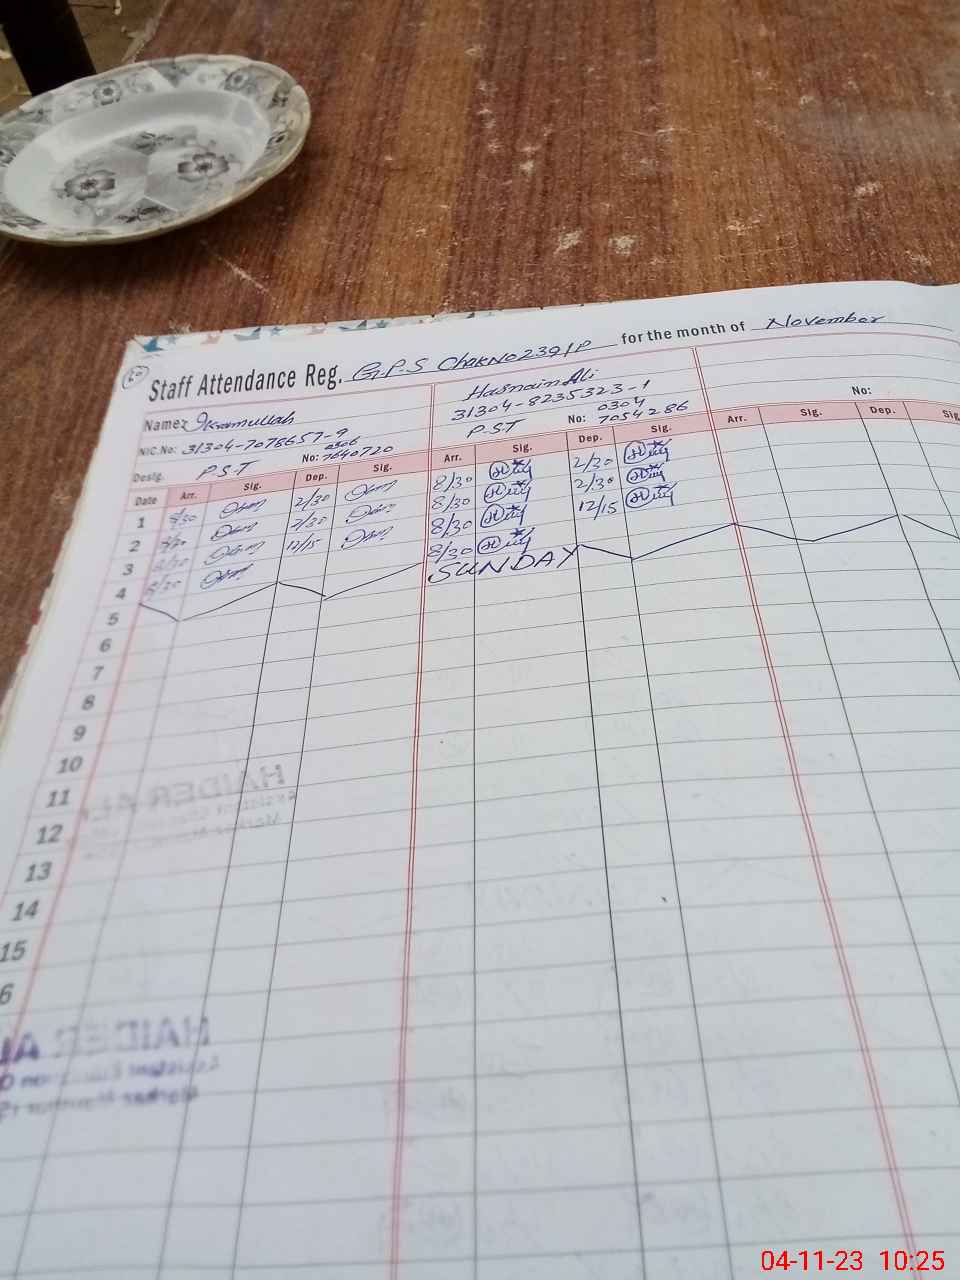 Staff Attendance Reg. G.P.S Chak No 239/P for the month of November
Name: Ikramullah Hasnain Ali
NIC.No: 31304-7078657-9 31304-8235323-1
Desig. P.S.T No: 0306 7640720 P.S.T No: 0304 7054286 No:
Date Arr. Sig. Dep. Sig. Arr. Sig. Dep. Sig. Arr. Sig. Dep. Sig
1 8/30 2/30 8/30 2/30
2 8/30 2/30 8/30 2/30
3 8/30 12/15 8/30 12/15
4 8/30 8/30
5 SUNDAY
6
7
8
9
10
11
12
13
14
15
6
HAIDER ALI
HAIDER AL
04-11-23 10:25